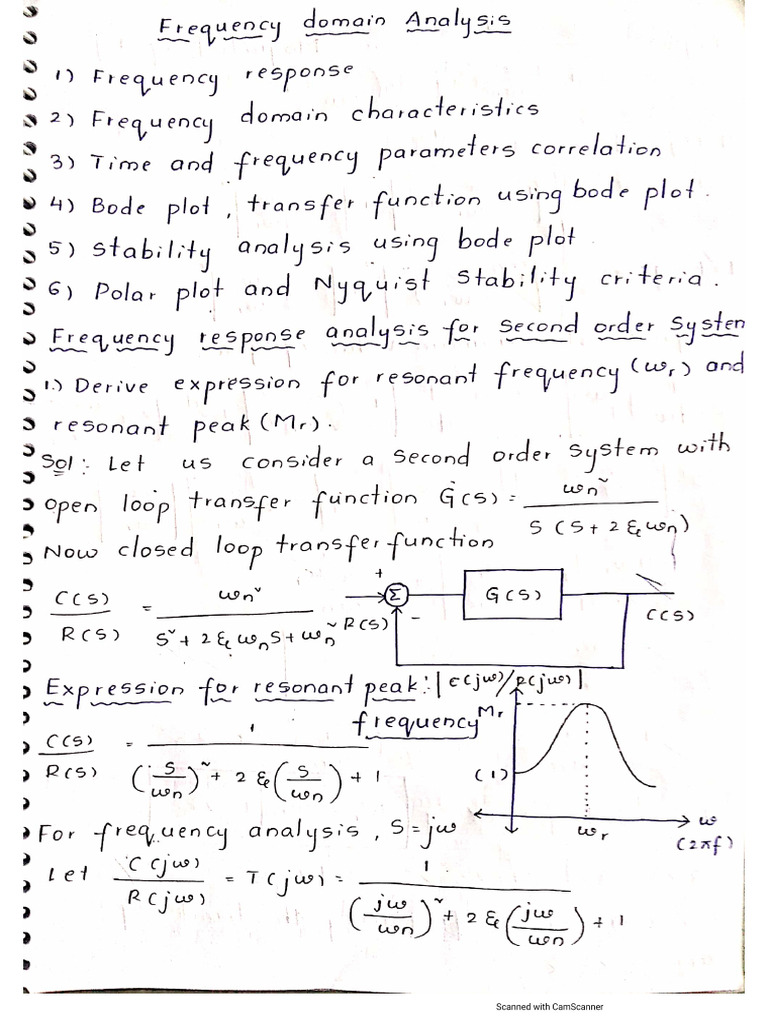 Frequency domain Analysis
1) Frequency response
2) Frequency domain characteristics
3) Time and frequency parameters correlation
4) Bode plot, transfer function using bode plot.
5) Stability analysis using bode plot
6) Polar plot and Nyquist stability criteria.
Frequency response analysis for second order System
1.) Derive expression for resonant frequency (ωr) and
resonant peak (Mr).
Sol: Let us consider a second order system with
open loop transfer function G(s) = ωn² / S(S + 2ξωn)
Now closed loop transfer function
C(S)/R(S) = ωn² / S² + 2ξωnS + ωn²
R(S) + Σ - G(S) C(S)
Expression for resonant peak: |C(jω)/R(jω)|
frequency Mr
C(S)/R(S) = 1 / (S/ωn)² + 2ξ(S/ωn) + 1
(1) ωr ω (2πf)
For frequency analysis, S = jω
Let C(jω)/R(jω) = T(jω) = 1 / (jω/ωn)² + 2ξ(jω/ωn) + 1
Scanned with CamScanner